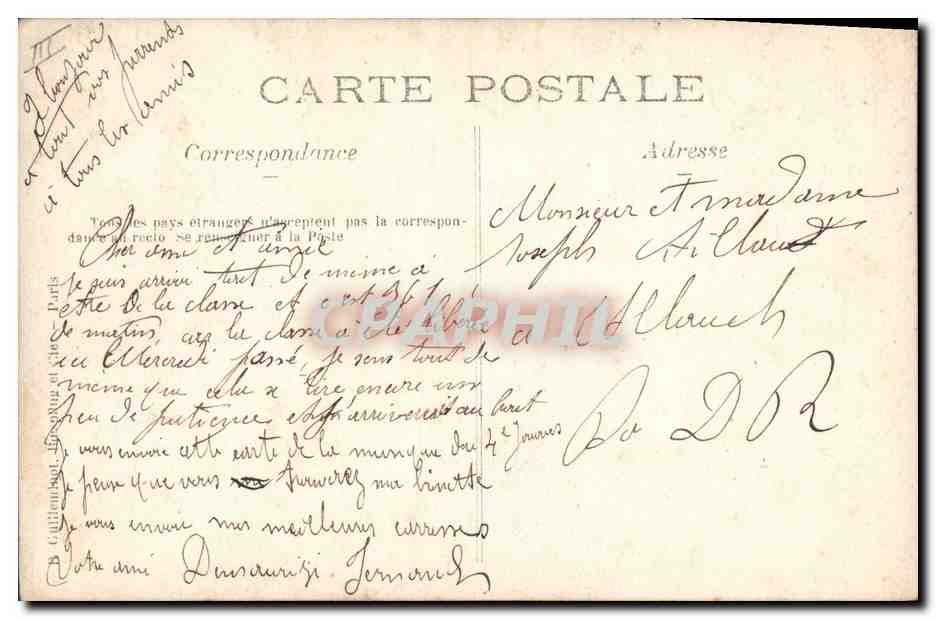 III
Bonjour
à tout vos parrends
à tous les amis
CARTE POSTALE
Correspondance
Adresse
Tous les pays étrangers n'acceptent pas la correspon-
dance au recto Se renseigner à la Poste
Cher ami et amie
je suis arrivé tout de meme à
etre de la classe et c'est 361
de matin, car la classe a été libérée
ici Mercredi passé, je sens tout de
meme que cela se tire encore un
peu de patience et j'arriverais au buret
je vous envoie cette carte de la musique du 4e
je pense que vous trouverez ma binette
je vous envoie mes meilleures carresses
Votre ami Fernand
Monsieur et madame
Joseph Aillaud
à Allauch
B D R
Paris
CPAPHIL